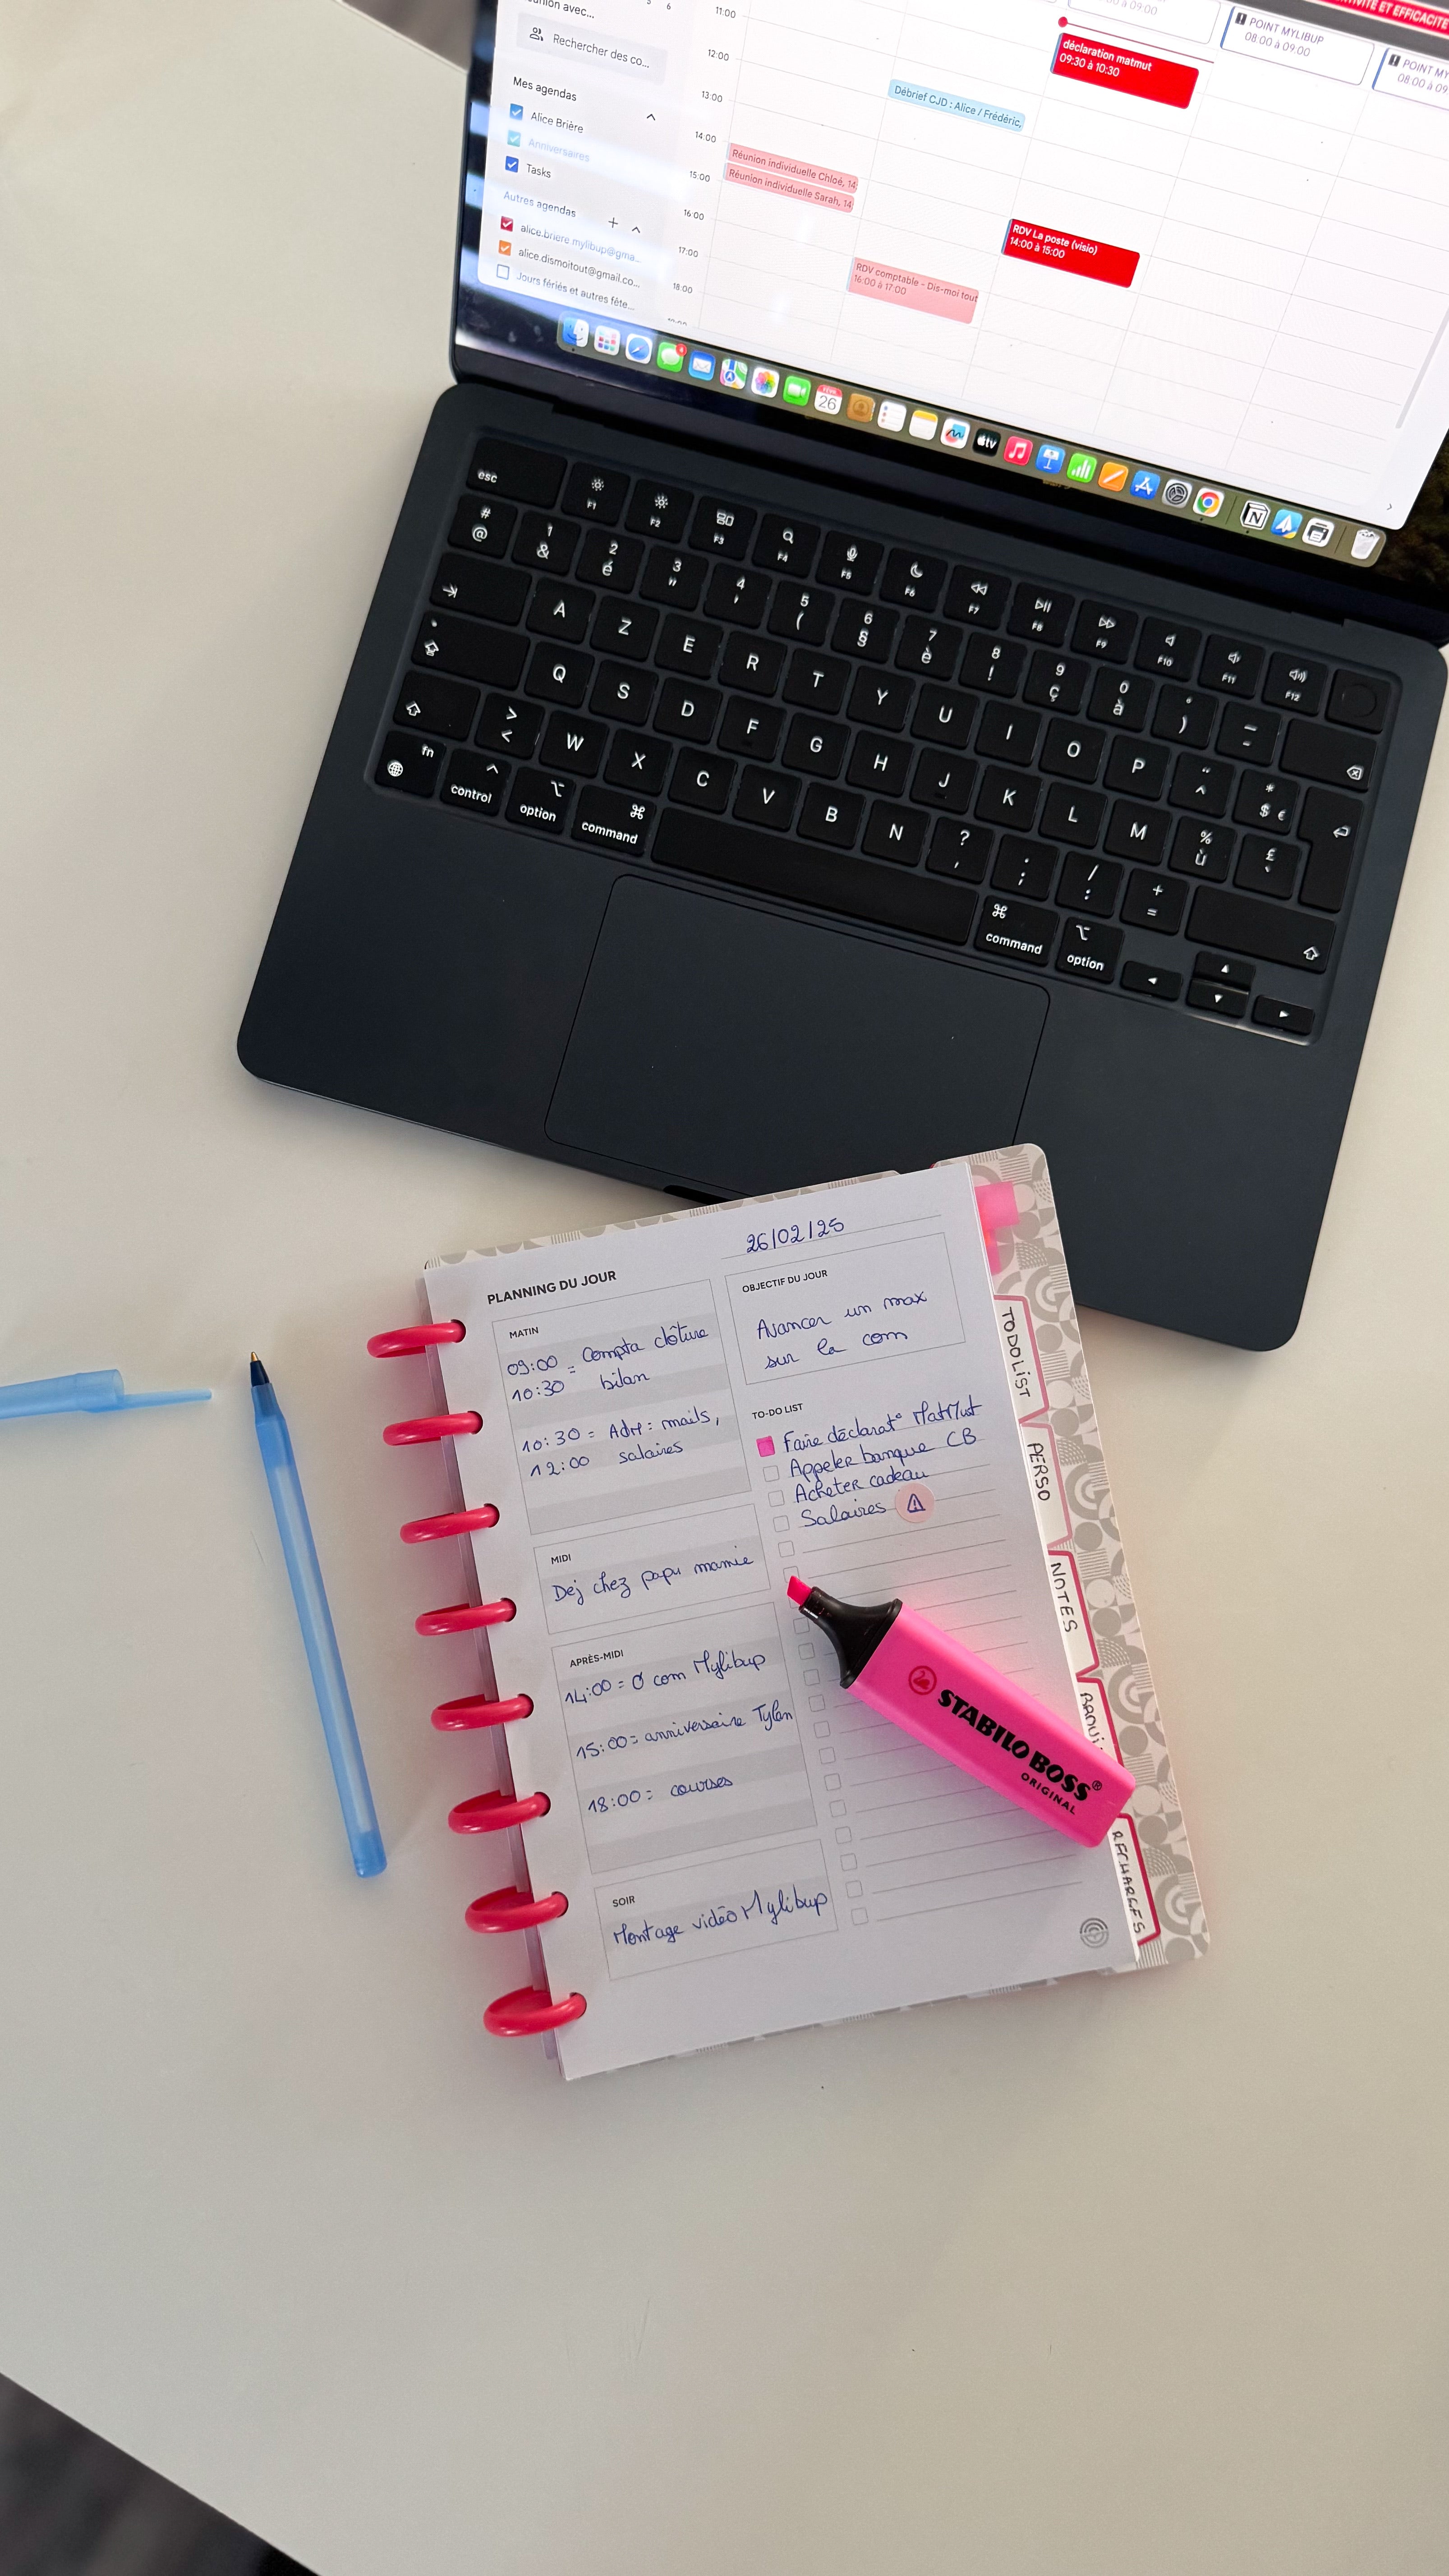 union avec...
Rechercher des co...
Mes agendas
Alice Brière
Anniversaires
Tasks
Autres agendas
alice.briere.mylibup@gma...
alice.dismoitout@gmail.co...
Jours fériés et autres fête...
5 6
11:00
12:00
13:00
14:00
15:00
16:00
17:00
18:00
Réunion individuelle Chloé, 14
Réunion individuelle Sarah, 14
RDV comptable - Dis-moi tout
16:00 à 17:00
Débrief CJD : Alice / Frédéric,
à 09:00
déclaration matmut
09:30 à 10:30
RDV La poste (visio)
14:00 à 15:00
ET EFFICACITE
POINT MYLIBUP
08:00 à 09:00
POINT MY
08:00 à 09
FÉVR.
26
tv
esc
F1
F2
F3
F4
F5
F6
F7
F8
F9
F10
F11
F12
# @
1 &
2 é
3 "
4 '
5 (
6 §
7 è
8 !
9 ç
0 à
° )
_ -
A Z E R T Y U I O P
¨ ^
* $ €
Q S D F G H J K L M
% ù
£ `
> <
W X C V B N
? ,
. ;
/ :
+ =
fn
control
option
command
command
option
26/02/25
PLANNING DU JOUR
MATIN
09:00 = Compta clôture
10:30 bilan
10:30 = Adm : mails,
12:00 salaires
MIDI
Dej chez papu mamie
APRÈS-MIDI
14:00 = O com Mylibup
15:00 = anniversaire Tylan
18:00 = courses
SOIR
Montage vidéo Mylibup
OBJECTIF DU JOUR
Avancer un max
sur la com
TO-DO LIST
Faire déclarat° MatMut
Appeler banque CB
Acheter cadeau
Salaires
STABILO BOSS®
ORIGINAL
TODOLIST
PERSO
NOTES
RECHARGES